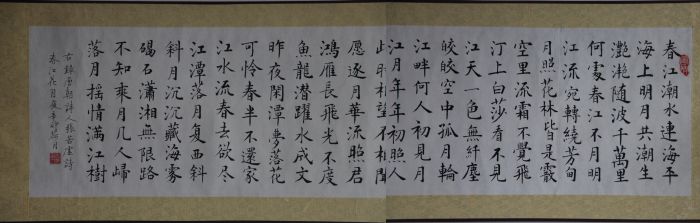 春江潮水連海平
海上明月共潮生
灔灔随波千萬里
何處春江不月明
江流宛轉繞芳甸
月照花林皆是霰
空里流霜不覺飛
汀上白莎看不見
江天一色無纤塵
皎皎空中孤月輪
江畔何人初見月
江月年年初照人
此時相望不相聞
愿逐月華流照君
鴻雁長飛光不度
魚龍潛躍水成文
昨夜閑潭夢落花
可怜春半不還家
江水流春去欲尽
江潭落月复西斜
斜月沉沉藏海霧
碣石瀟湘無限路
不知乘月几人歸
落月摇情满江樹
右錄唐朝詩人張若虚詩
春江花月夜